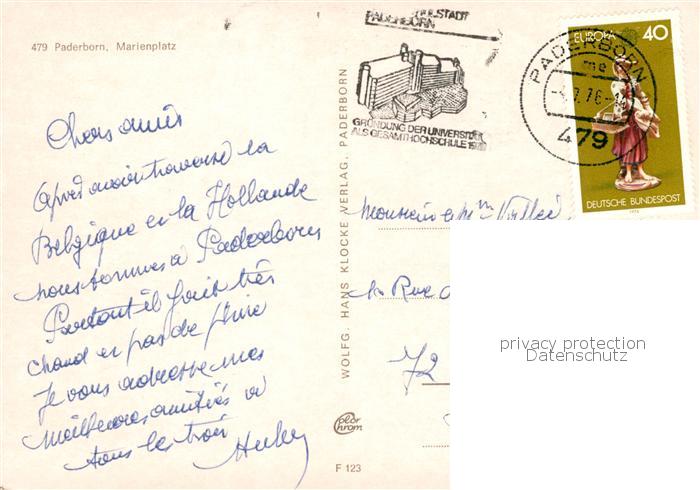 479 Paderborn, Marienplatz
Chers amis
après avoir traversé la
Belgique et la Hollande
nous sommes à Paderborn
Partout il fait très
chaud et pas de pluie
Je vous adresse mes
meilleures amitiés à
tous les trois
WOLFG. HANS KLOCKE VERLAG, PADERBORN
F 123
PADERBORN
GRÜNDUNG DER UNIVERSITÄT
ALS GESAMTHOCHSCHULE
PADERBORN
me
479
EUROPA 40
DEUTSCHE BUNDESPOST
1976
Monsieur et Mme
Rue
72
privacy protection
Datenschutz